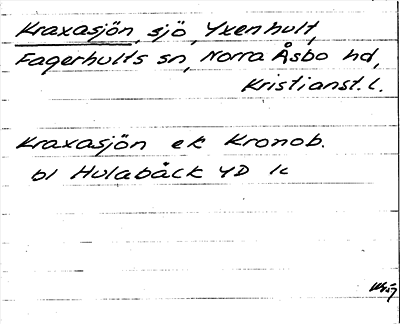 Kraxasjön, sjö, Yxenhult,
Fagerhults sn, Norra Åsbo hd,
Kristianst. l.
Kraxasjön ek Kronob.
bl Hulabäck 4D 1c